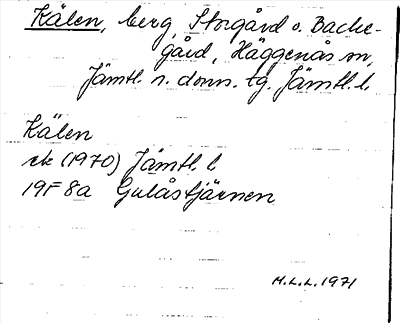 Kälen, berg, Storgård o. Backe-
gård, Häggenås sn,
Jämtl. n. doms. tg. Jämtl. l.
Kälen
ek (1970) Jämtl. l
19F 8a Gulåstjärnen
H.L.L. 1971